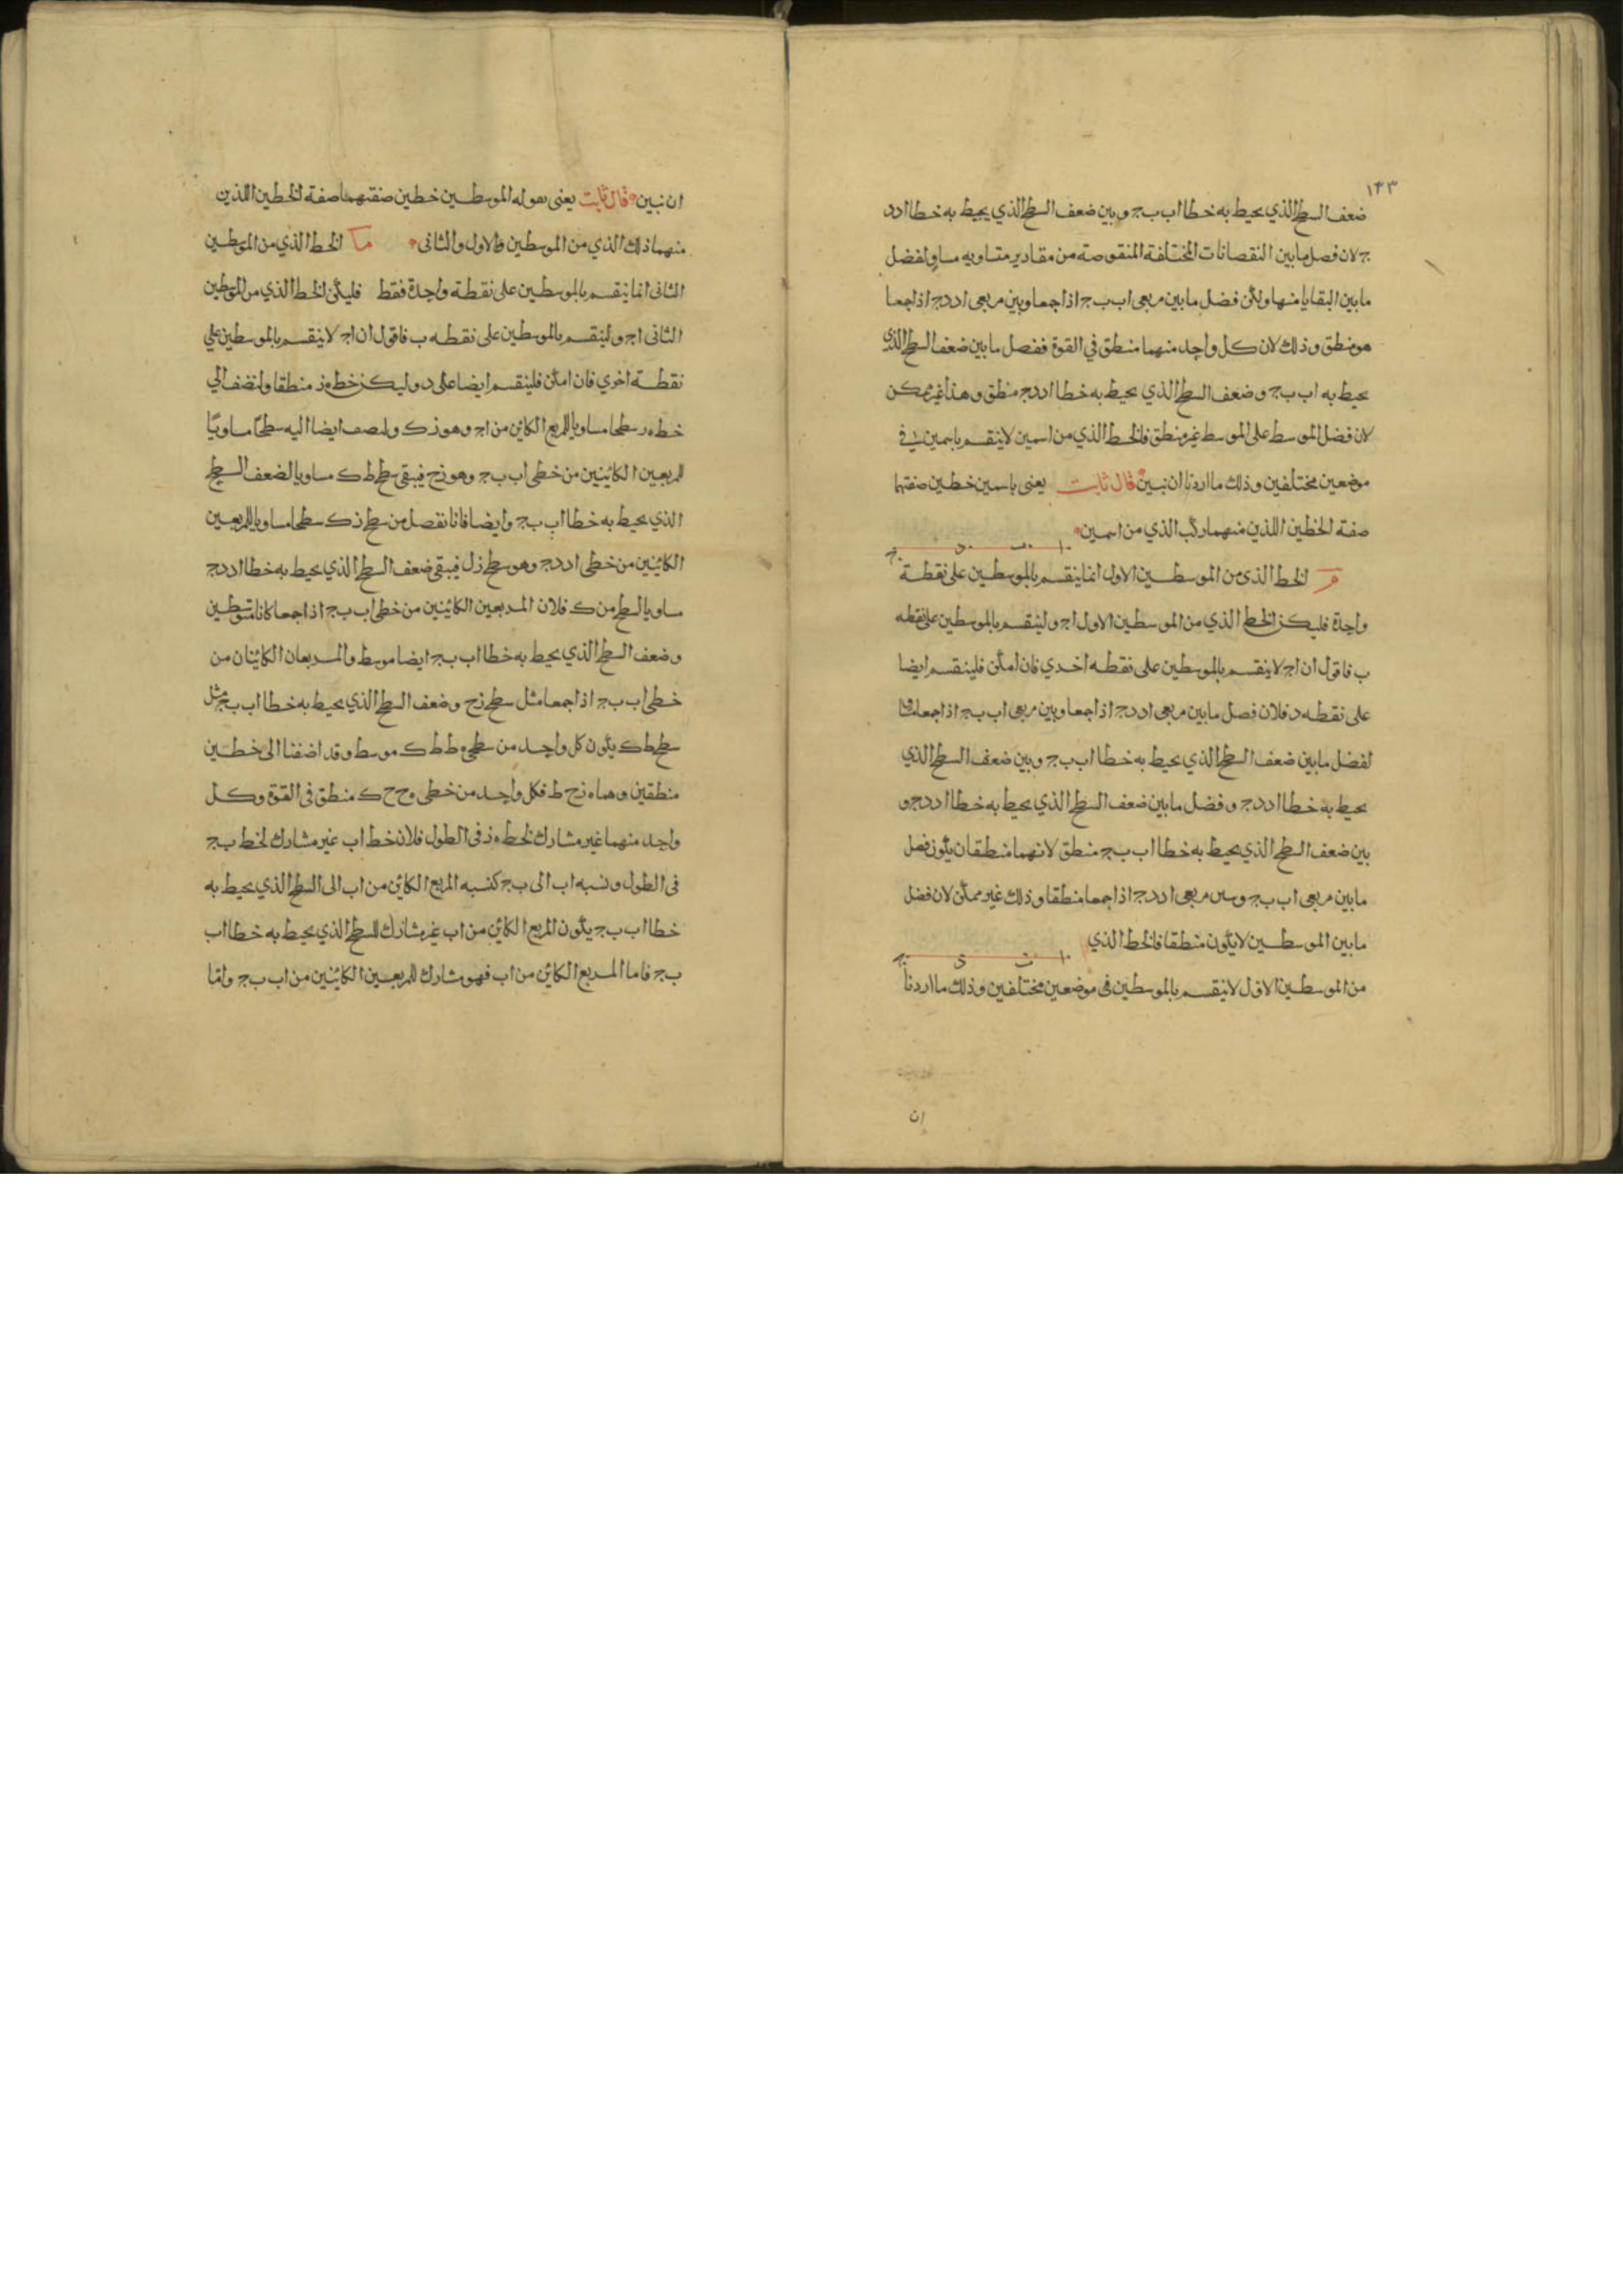 ١٤٣
ضعف السطح الذي يحيط به خطا اب بج وبين ضعف السطح الذي يحيط به خطا اد د
ج لان فصل ما بين النقصانات المختلفة المنقوصة من مقادير متساويه مساو لفضل
ما بين البقايا منها ولكن فضل ما بين مربعي اب بج اذا جمعا وبين مربعي اد دج اذا جمعا
هو منطق وذلك لان كل واحد منهما منطق في القوة ففصل ما بين ضعف السطح الذي
يحيط به اب بج وضعف السطح الذي يحيط به خطا اد دج منطق وهذا غير ممكن
لان فضل الموسط على الموسط غير منطق فالخط الذي من اسمين لا ينقسم باسمين في
موضعين مختلفين وذلك ما اردنا ان نبين قال ثابت يعني باسمين خطين صفتهما
صفة الخطين اللذين منهما ركب الذي من اسمين
ا ب د ج
م الخط الذي من الموسطين الاول انما ينقسم بالموسطين على نقطة
واحدة فليكن الخط الذي من الموسطين الاول اج ولينقسم بالموسطين على نقطه
ب فاقول ان اج لا ينقسم بالموسطين على نقطه اخري فان امكن فلينقسم ايضا
على نقطه د فلان فصل ما بين مربعي اد دج اذا جمعا وبين مربعي اب بج اذا جمعا مساو
لفضل ما بين ضعف السطح الذي يحيط به خطا اب بج وبين ضعف السطح الذي
يحيط به خطا اد دج وفضل ما بين ضعف السطح الذي يحيط به خطا اد دج و
بين ضعف السطح الذي يحيط به خطا اب بج منطق لانهما منطقان يكون فصل
ما بين مربعي اب بج وبين مربعي اد دج اذا جمعا منطقا وذلك غير ممكن لان فضل
ما بين الموسطين لا يكون منطقا فالخط الذي
ا ب د ج
من الموسطين الاول لا ينقسم بالموسطين في موضعين مختلفين وذلك ما اردنا
ان
ان نبين قال ثابت يعني بقوله الموسطين خطين صفتهما صفة الخطين اللذين
منهما ذلك الذي من الموسطين والاول والثاني ما الخط الذي من الموسطين
الثاني انما ينقسم بالموسطين على نقطة واحدة فقط فليكن الخط الذي من الموسطين
الثاني اج ولينقسم بالموسطين على نقطه ب فاقول ان اج لا ينقسم بالموسطين علي
نقطة اخري فان امكن فلينقسم ايضا على د وليكن خط ه ز منطقا ولنضف الي
خط ه ر سطحا مساويا للمربع الكائن من اج وهو زك ولنضف ايضا اليه سطحا مساويا
للمربعين الكائنين من خطي اب بج وهو زح فيبقى سطح ط ك مساويا لضعف السطح
الذي يحيط به خطا اب بج وايضا فانا نفصل من سطح زك سطحا مساويا للمربعين
الكائنين من خطي اد دج وهو سطح زل فيبقى ضعف السطح الذي يحيط به خطا اد دج
مساويا لسطح من ك فلان المربعين الكائنين من خطي اب بج اذا جمعا كانا متوسطين
وضعف السطح الذي يحيط به خطا اب بج ايضا موسط والمربعان الكائنان من
خطي اب بج اذا جمعا مثل سطح زح وضعف السطح الذي يحيط به خطا اب بج مثل
سطح ط ك يكون كل واحد من سطحي ه ط ط ك موسط وقد اضفنا الى خطين
منطقين وهما ه ز ح ط فكل واحد من خطي ه ح ح ك منطق في القوة وكل
واحد منهما غير مشارك لخط ه ز في الطول فلان خط اب غير مشارك لخط بج
في الطول ونسبه اب الى بج كنسبه المربع الكائن من اب الى السطح الذي يحيط به
خطا اب بج يكون المربع الكائن من اب غير مشارك للسطح الذي يحيط به خطا اب
بج فاما المربع الكائن من اب فهو مشارك للمربعين الكائنين من اب بج واما